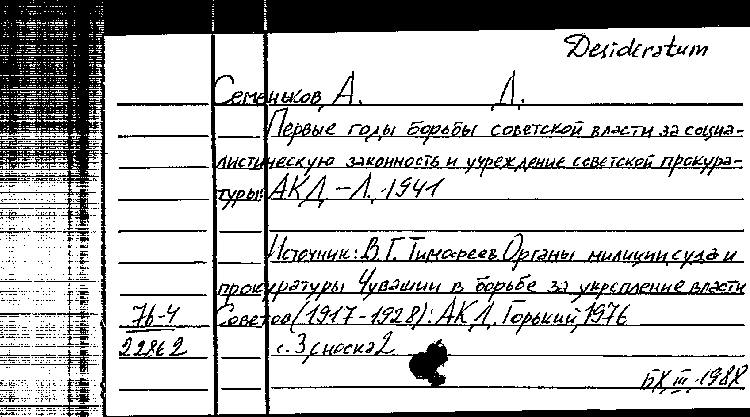 Desideratum
Семеньков А. Д.
Первые годы борьбы советской власти за социа-
листическую законность и учреждение советской прокура-
туры: АКД – Л., 1941
Источник: В.Г. Тимофеев Органы милиции, суда и
прокуратуры Чувашии в борьбе за укрепление власти
76-4 Советов (1917-1928): АКД. Горький, 1976
22862 с. 3 сноска 2.
БХ III 1988